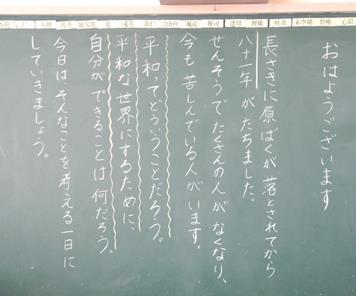 おはようございます
長さきに原ばくが落とされてから
八十一年がたちました。
せんそうでたくさんの人がなくなり、
今も苦しんでいる人がいます。
平和ってどういうことだろう。
平和な世界にするために、
自分ができることは何だろう。
今日はそんなことを考える一日に
していきましょう。